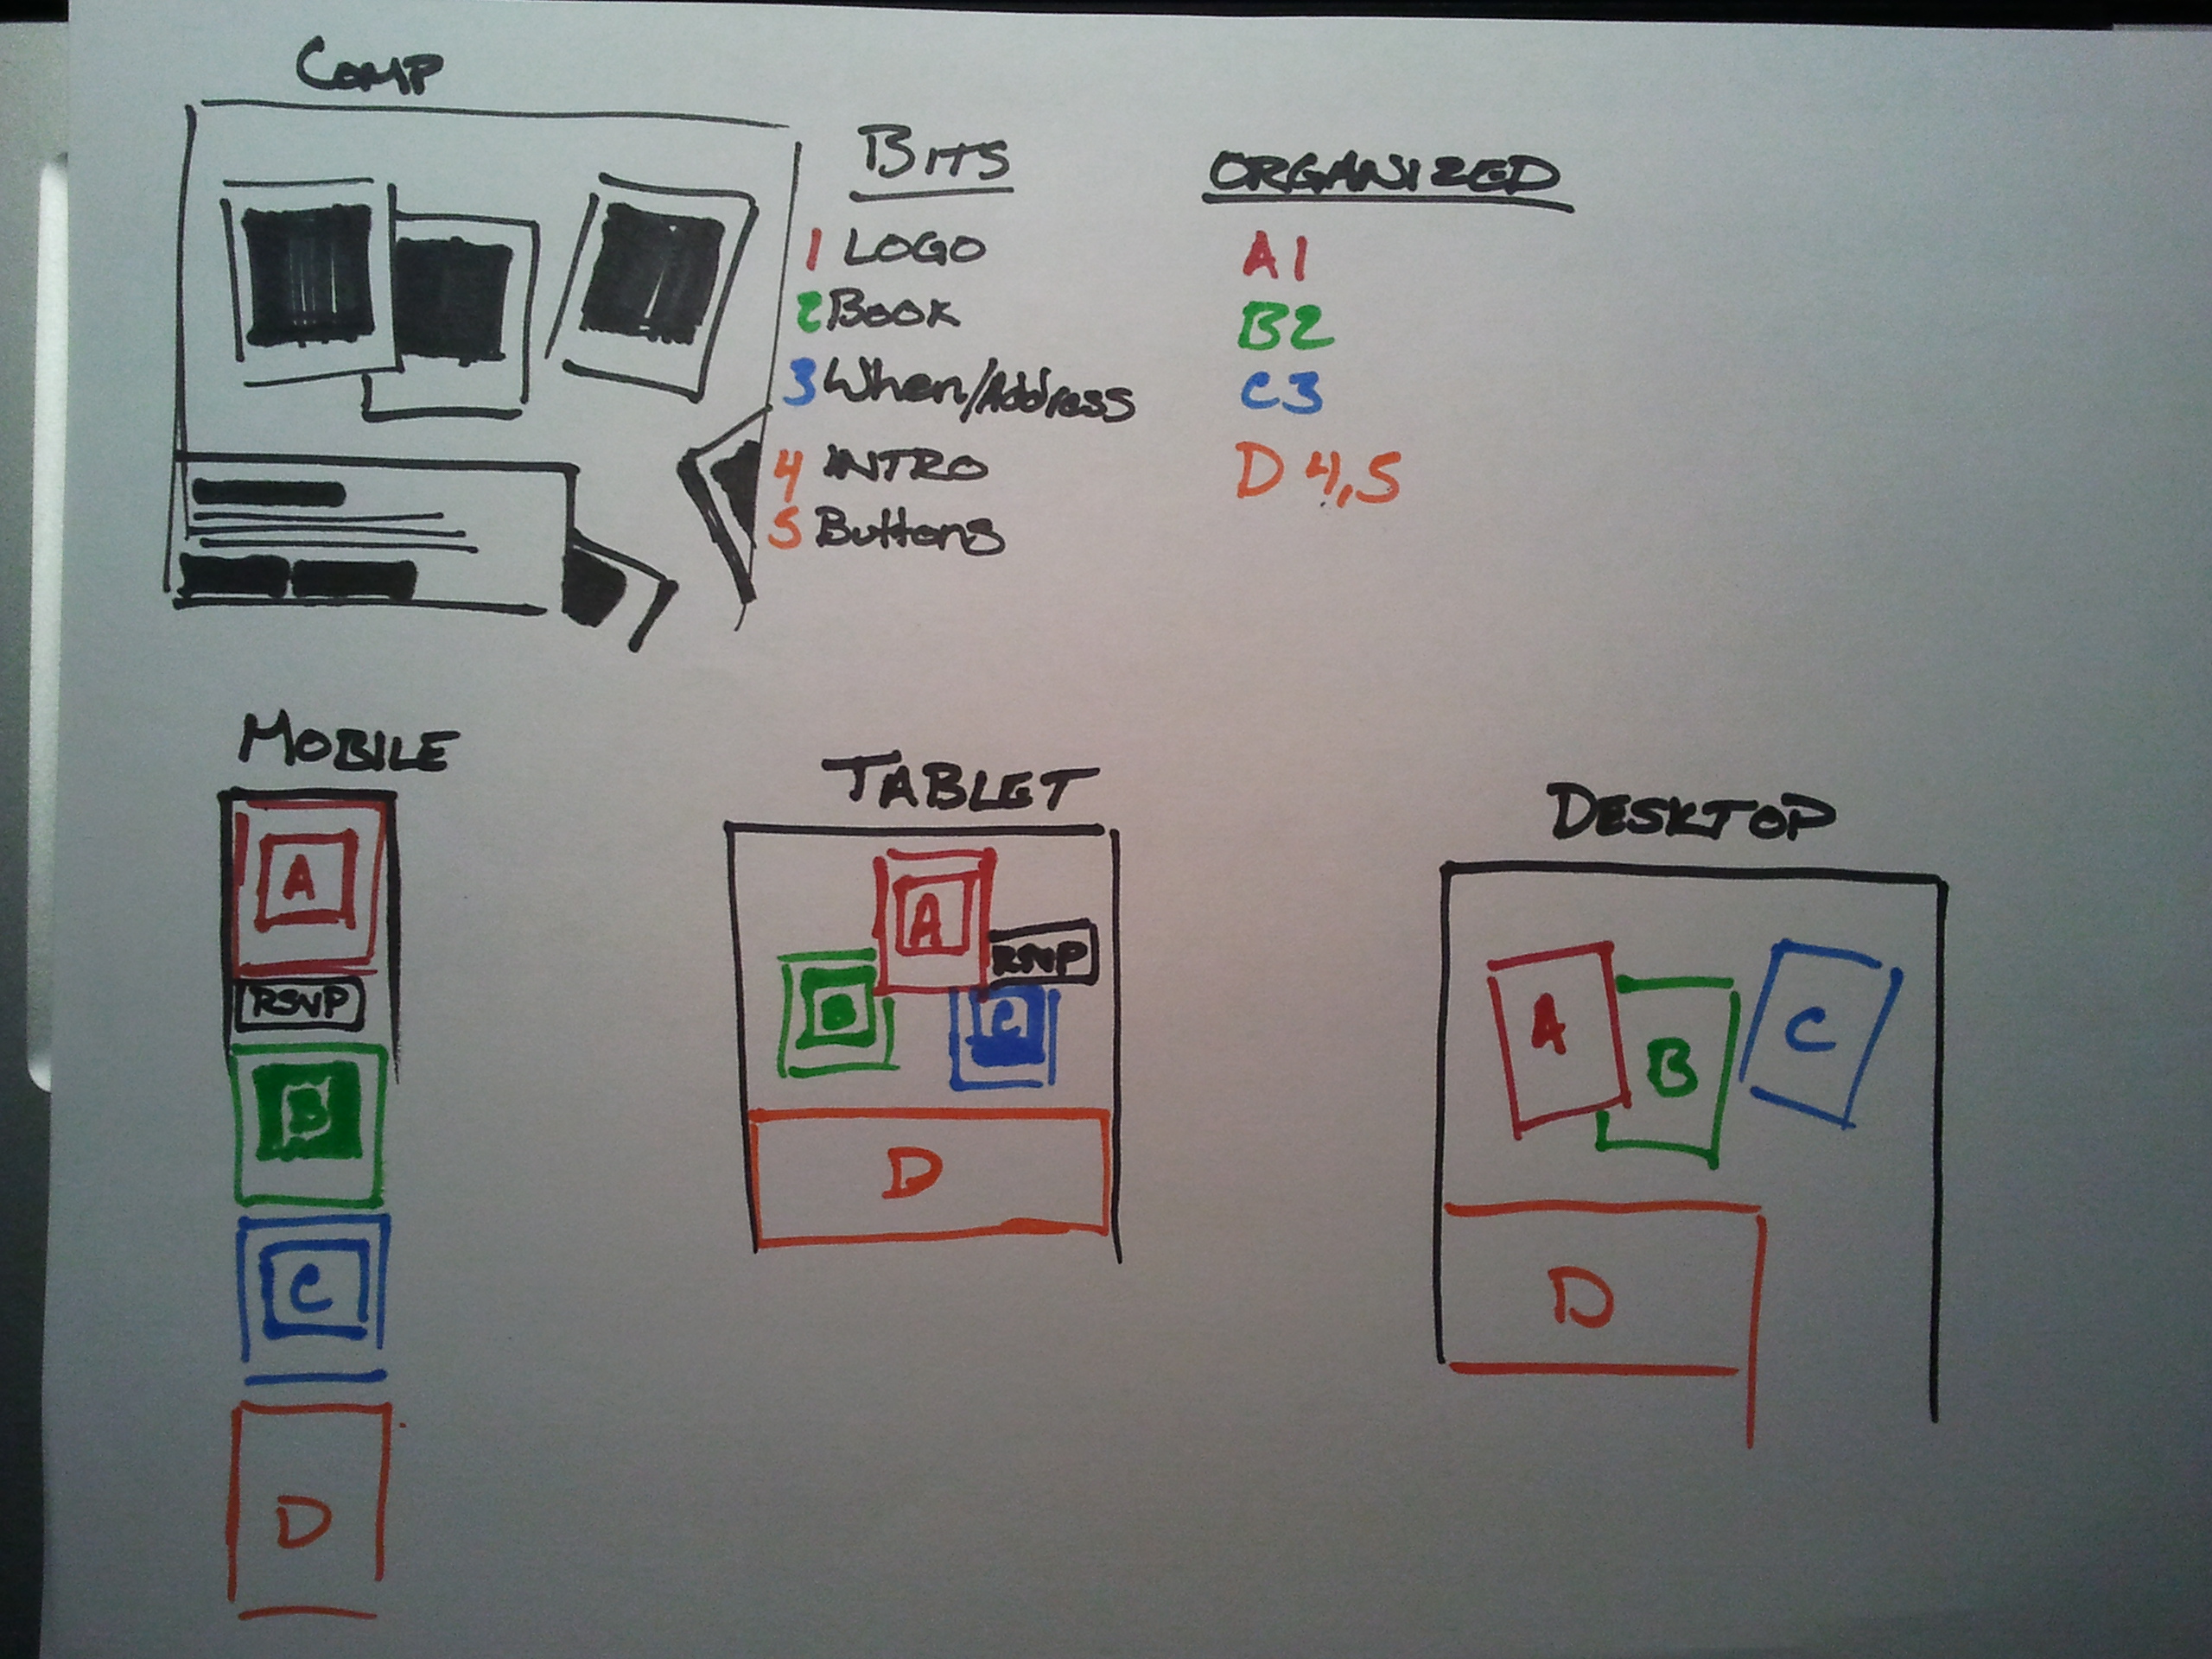 COMP
BITS
1 LOGO
2 Book
3 When/Address
4 INTRO
5 Buttons
ORGANIZED
A1
B2
C3
D 4,5
MOBILE
A
RSVP
B
C
D
TABLET
A
RSVP
B
C
D
DESKTOP
A
B
C
D